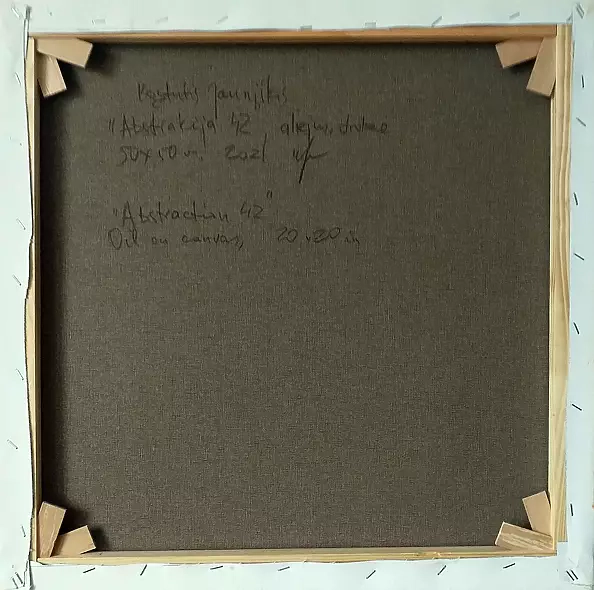 Kęstutis Jauniškis
"Abstrakcija 42 aliejus, drobė
50x50 cm. 2021
"Abstraction 42"
Oil on canvas, 20x20 in